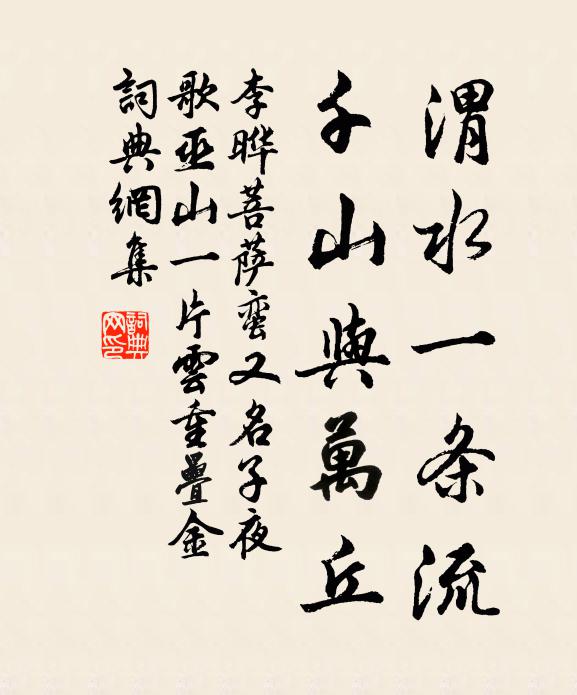 渭水一条流
千山與萬丘
李晔菩萨蛮又名子夜
歌巫山一片雲重疊金
詞典網集
詞典网印